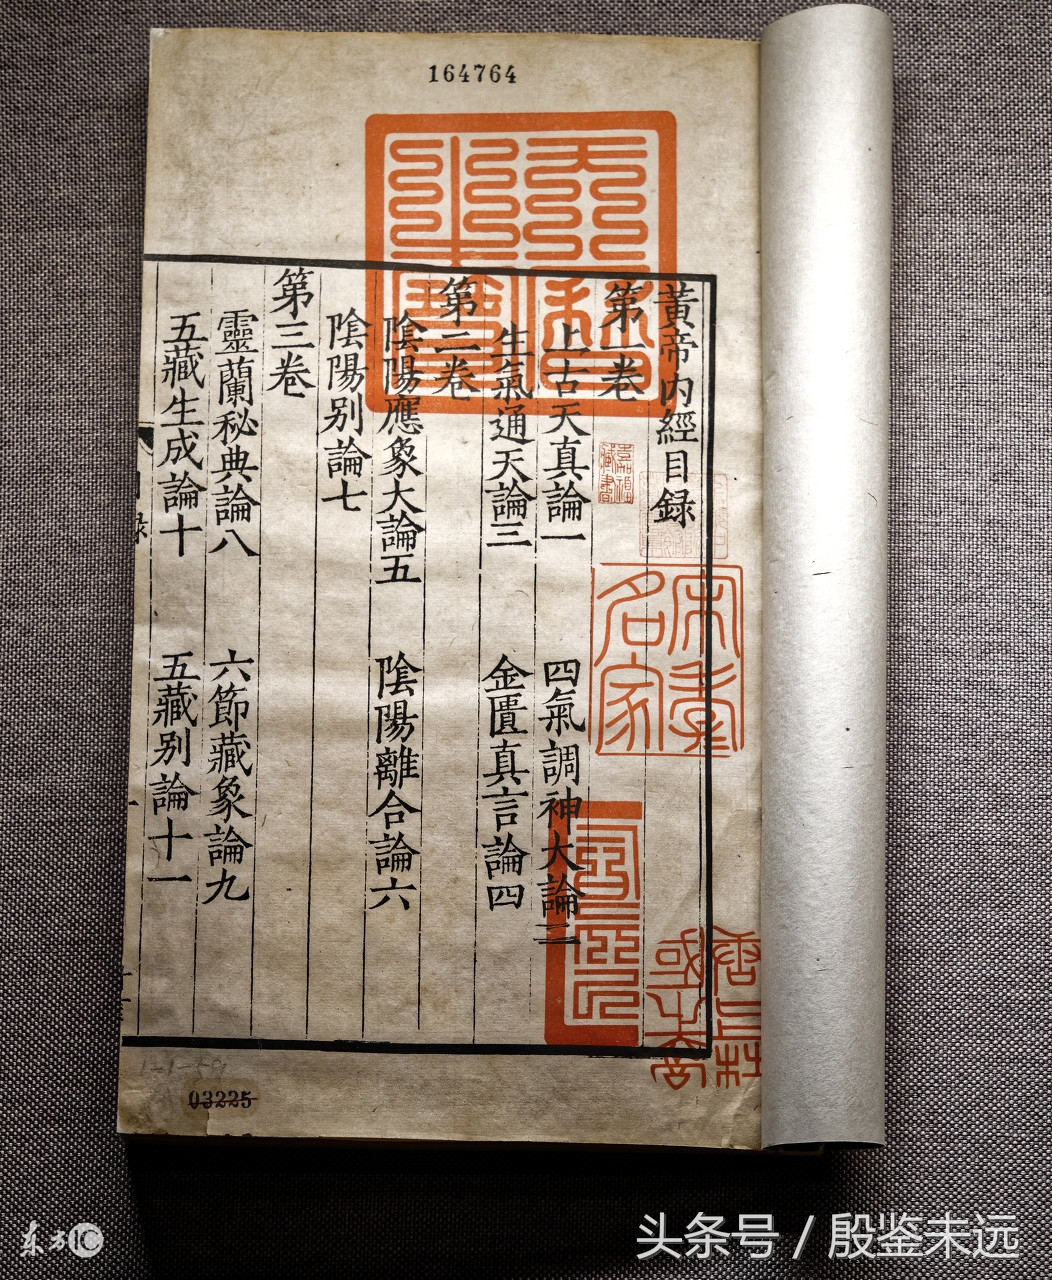 164764
黃帝內經目錄
第一卷
上古天真論一
四氣調神大論二
生氣通天論三
金匱真言論四
第二卷
陰陽應象大論五
陰陽離合論六
陰陽别論七
第三卷
靈蘭秘典論八
六節藏象論九
五藏生成論十
五藏别論十一
嘉福
藏書
03225
东方IC
头条号 / 殷鉴未远